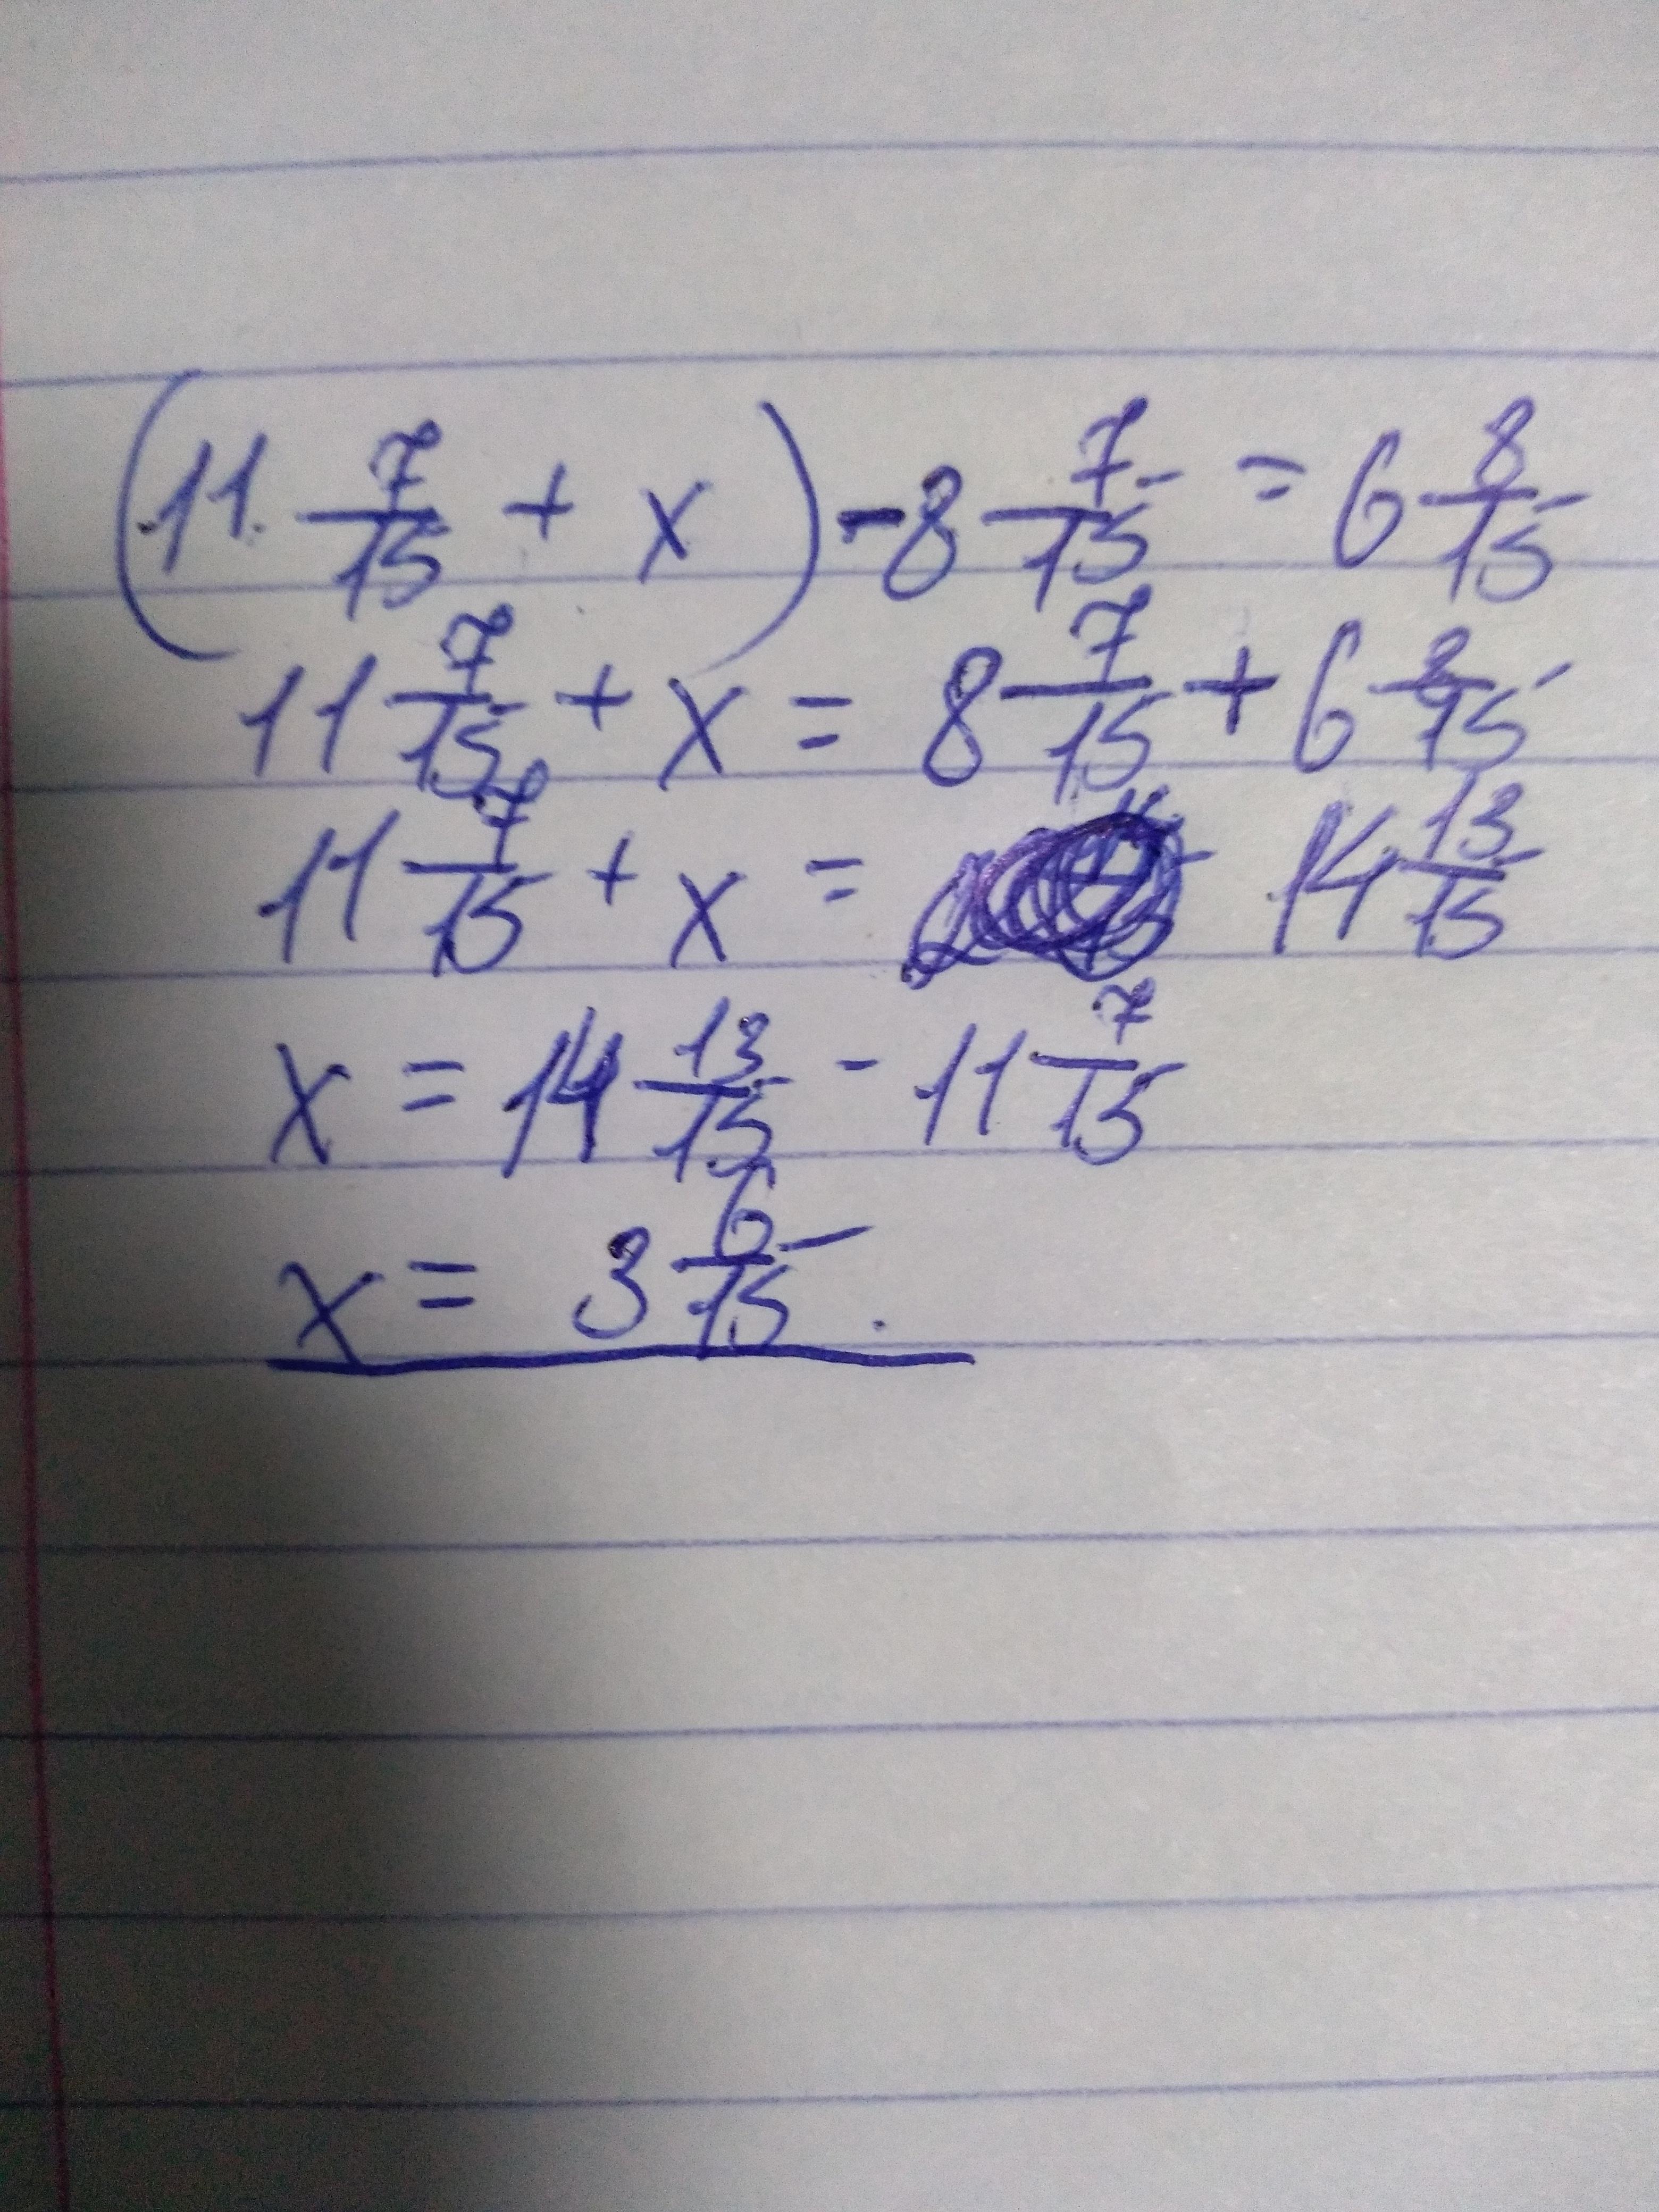 (11 7/15 + x) - 8 7/15 = 6 8/15
11 7/15 + x = 8 7/15 + 6 8/15
11 7/15 + x = 14 13/15
x = 14 13/15 - 11 7/15
x = 3 6/15.